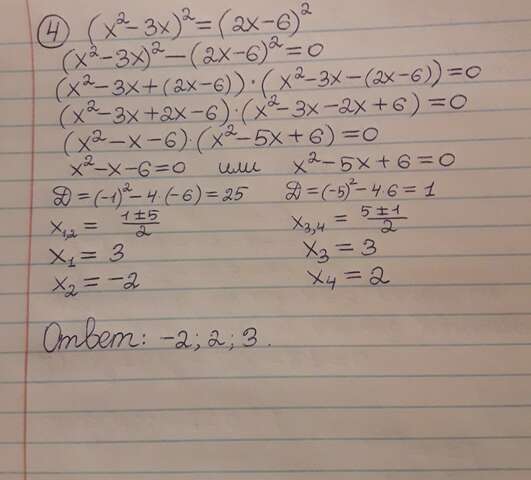 ④ (x²-3x)²=(2x-6)²
(x²-3x)²-(2x-6)²=0
(x²-3x+(2x-6))·(x²-3x-(2x-6))=0
(x²-3x+2x-6)·(x²-3x-2x+6)=0
(x²-x-6)·(x²-5x+6)=0
x²-x-6=0 или x²-5x+6=0
Д=(-1)²-4·(-6)=25 Д=(-5)²-4·6=1
x₁,₂= (1±5)/2 x₃,₄= (5±1)/2
x₁=3 x₃=3
x₂=-2 x₄=2
Ответ: -2; 2; 3.